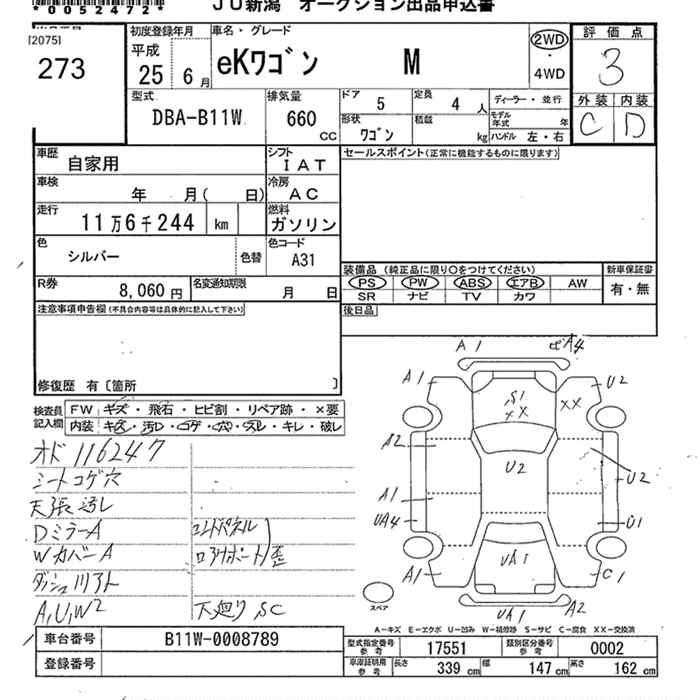 *0052472*
JU新潟 オークション出品申込書
[2075]
273
初度登録年月
平成
25年 6月
車名・グレード
eKワゴン M
2WD
・
4WD
評価点
3
外装 内装
C D
型式
DBA-B11W
排気量
660 CC
ドア 5
定員 4 人
ディーラー・並行
モデル年式 年
形状 ワゴン
積載 kg
ハンドル 左・右
車歴 自家用
シフト IAT
セールスポイント(正常に機能するものに限ります)
車検 年 月( 日)
冷房 AC
走行 11万6千244 km
燃料 ガソリン
色 シルバー
色替
色コード A31
装備品(純正品に限り○をつけてください)
PS PW ABS エアB AW
SR ナビ TV カワ
新車保証書
有・無
R券 8,060 円
名変通知期限 月 日
後日品
注意事項申告欄(不具合内容等は具体的に記入して下さい)
修復歴 有〔箇所 〕
検査員記入欄
FW キズ・飛石・ヒビ割・リペア跡・×要
内装 キズ・汚レ・コゲ・穴・スレ・キレ・破レ
オド 116247
シートコゲ穴
天張汚レ
DミラーA
WカバーA
A,U,W2
コアサポート歪
下廻りSC
A1
A4
A1
S1
XX
XX
U2
A2
U2
U2
A1
UA4
U1
A1
UA1
C1
スペア
UA1
A2
A-キズ E-エクボ U-凹み W-補修跡 S-サビ C-腐食 XX-交換済
車台番号 B11W-0008789
登録番号
型式指定番号 参考 17551
類別区分番号 参考 0002
車庫証明用 参考 長さ 339 cm 幅 147 cm 高さ 162 cm